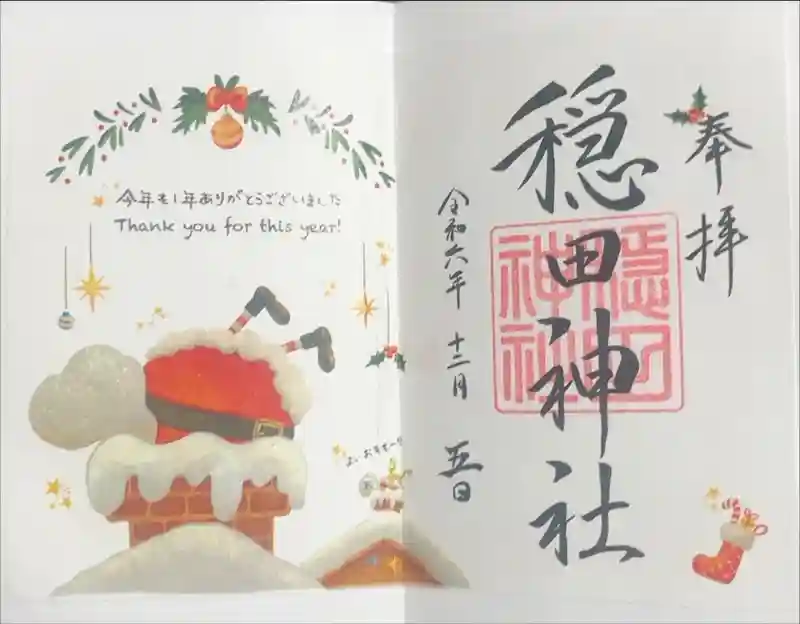 奉拝
穏田神社
穏田
神社
令和六年 十二月 五日
今年も1年ありがとうございました
Thank you for this year!